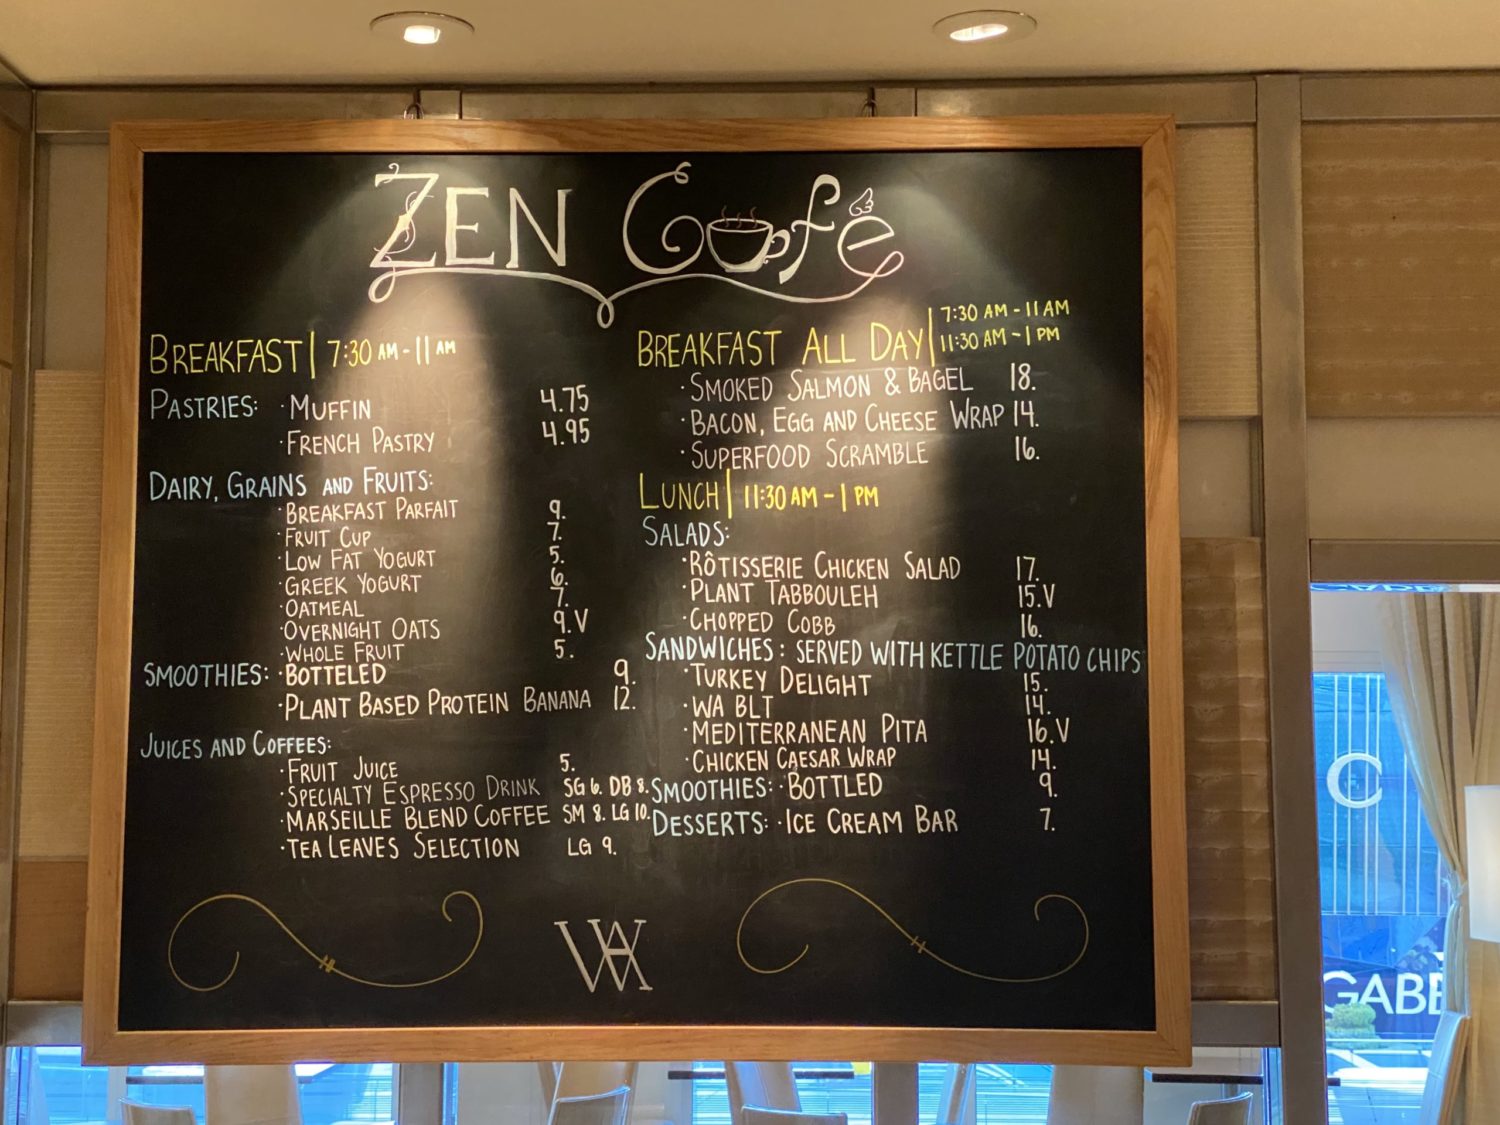 ZEN Café
BREAKFAST | 7:30 AM - 11 AM
PASTRIES: · MUFFIN 4.75
· FRENCH PASTRY 4.95
DAIRY, GRAINS AND FRUITS:
· BREAKFAST PARFAIT 9.
· FRUIT CUP 7.
· LOW FAT YOGURT 5.
· GREEK YOGURT 6.
· OATMEAL 7.
· OVERNIGHT OATS 9.V
· WHOLE FRUIT 5.
SMOOTHIES: · BOTTELED 9.
· PLANT BASED PROTEIN BANANA 12.
JUICES AND COFFEES:
· FRUIT JUICE 5.
· SPECIALTY ESPRESSO DRINK SG 6. DB 8.
· MARSEILLE BLEND COFFEE SM 8. LG 10.
· TEA LEAVES SELECTION LG 9.
BREAKFAST ALL DAY | 7:30 AM - 11 AM
11:30 AM - 1 PM
· SMOKED SALMON & BAGEL 18.
· BACON, EGG AND CHEESE WRAP 14.
· SUPERFOOD SCRAMBLE 16.
LUNCH | 11:30 AM - 1 PM
SALADS:
· RÔTISSERIE CHICKEN SALAD 17.
· PLANT TABBOULEH 15.V
· CHOPPED COBB 16.
SANDWICHES: SERVED WITH KETTLE POTATO CHIPS
· TURKEY DELIGHT 15.
· WA BLT 14.
· MEDITERRANEAN PITA 16.V
· CHICKEN CAESAR WRAP 14.
SMOOTHIES: · BOTTLED 9.
DESSERTS: · ICE CREAM BAR 7.
WA
C
GABB